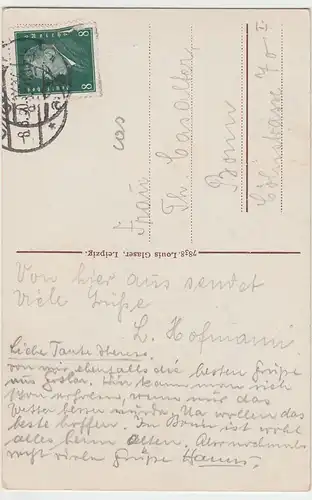 Frau
Th. Casalter
Bonn
Cölnstrasse 70 I.
cas
7898. Louis Glaser, Leipzig.
8 8
Von hier aus sendet
viele Grüße
L. Hofmann
Liebe Tante
von mir ebenfalls die besten Grüße
aus Goslar. Hier kann man sich
schon erholen, wenn nur das
Wetter besser würde. Na wollen das
beste hoffen. In Bonn ist wohl
alles beim alten. Also nochmals
recht viele Grüße Hanns.